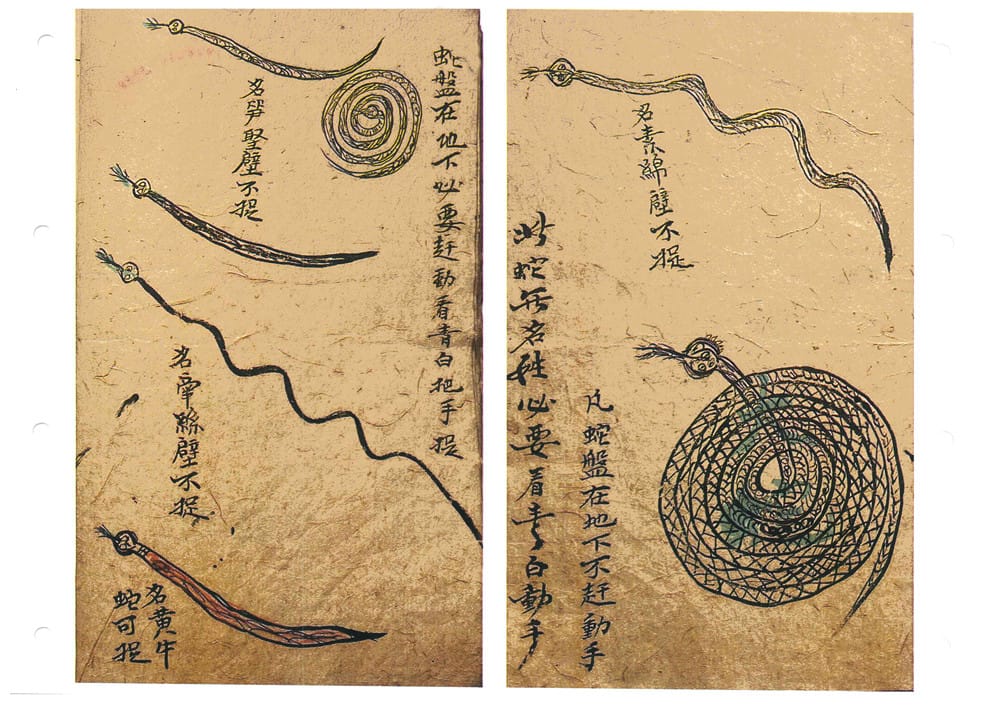 名素綿壁不捉
凡蛇盤在地下不赶動手
此蛇無名姓必要看青白動手
蛇盤在地下必要赶動看青白把手捉
名笋堅壁不捉
名雷絲壁不捉
名黃牛
蛇可捉